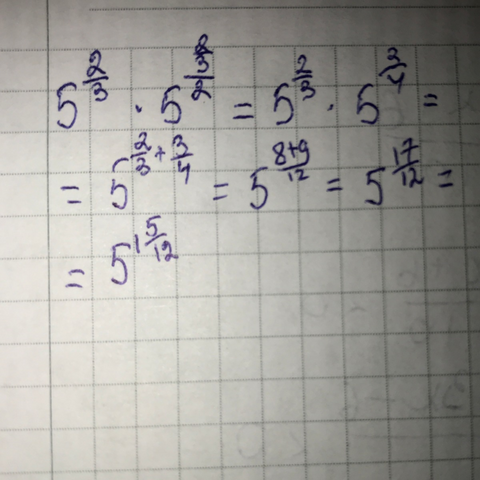 5^(2/3) · 5^((3/2)/2) = 5^(2/3) · 5^(3/4) =
= 5^(2/3 + 3/4) = 5^((8+9)/12) = 5^(17/12) =
= 5^(1 5/12)